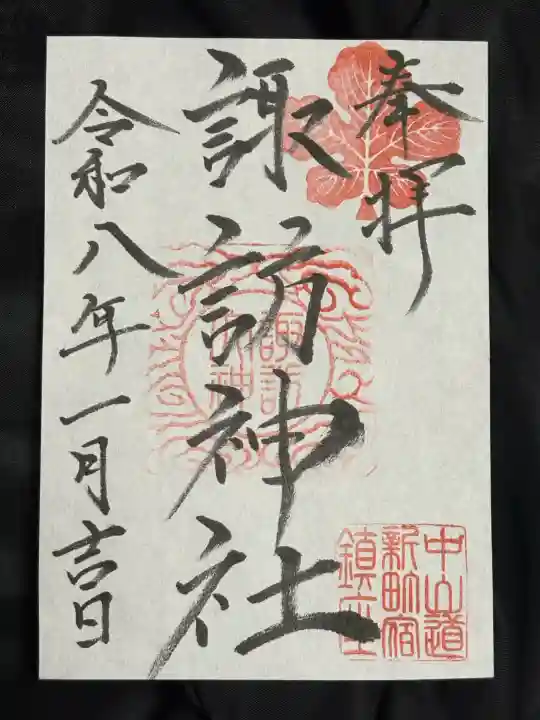 奉拝
諏訪神社
令和八年一月吉日
諏訪
神
中山道
新町宿
鎮座